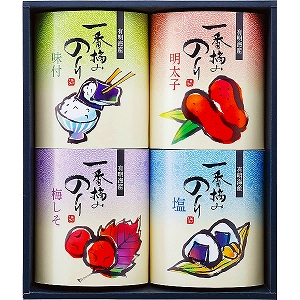 有明海産
一番摘み
のり
味付
有明海産
一番摘み
のり
明太子
有明海産
一番摘み
のり
梅しそ
有明海産
一番摘み
のり
塩